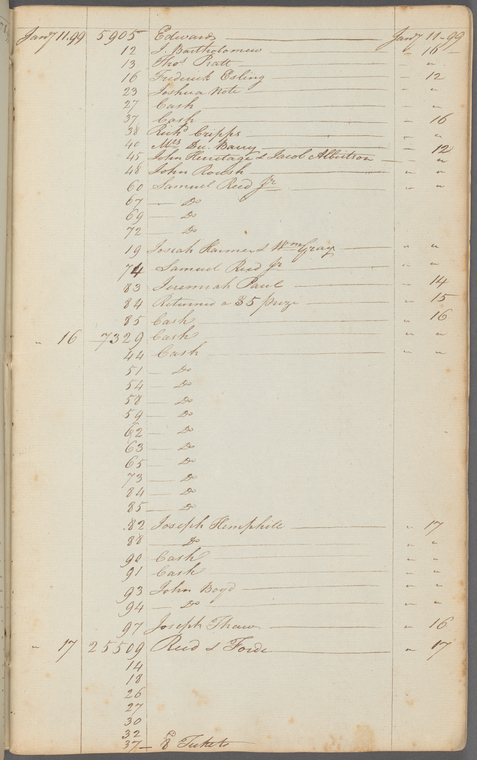 Jany 11.99 5905 Edwards Jany 11-99
12 J. Bartholomew " 16
13 Thos Pratt " "
16 Frederick Esling 12
23 Joshua Note " "
27 Cash " "
37 Cash " 16
38 Richd Cripps " "
40 Mrs Du Barry - 12
45 John Heritage & Jacob Albertson "
48 John Roush " "
60 Samuel Reed Jr " "
67 — Do
69 — Do
72 — Do
19 Josiah & Wm Gray " "
74 Samuel Reed Jr " "
83 Jeremiah Paul - 14
84 Returned a $5 prize - 15
85 Cash " 16
" 16 7329 Cash " "
44 Cash " "
51 — Do
54 — Do
58 — Do
59 — Do
62 — Do
63 — Do
65 — Do
73 — Do
84 — Do
85 — Do
82 Joseph Hemphill " 17
88 — Do " "
90 Cash " "
91 Cash " "
93 John Boyd " "
94 — Do " "
97 Joseph Thaw " 16
" 17 25509 Reed & Forde " 17
14
18
26
27
30
32
37 — 8 Tickets